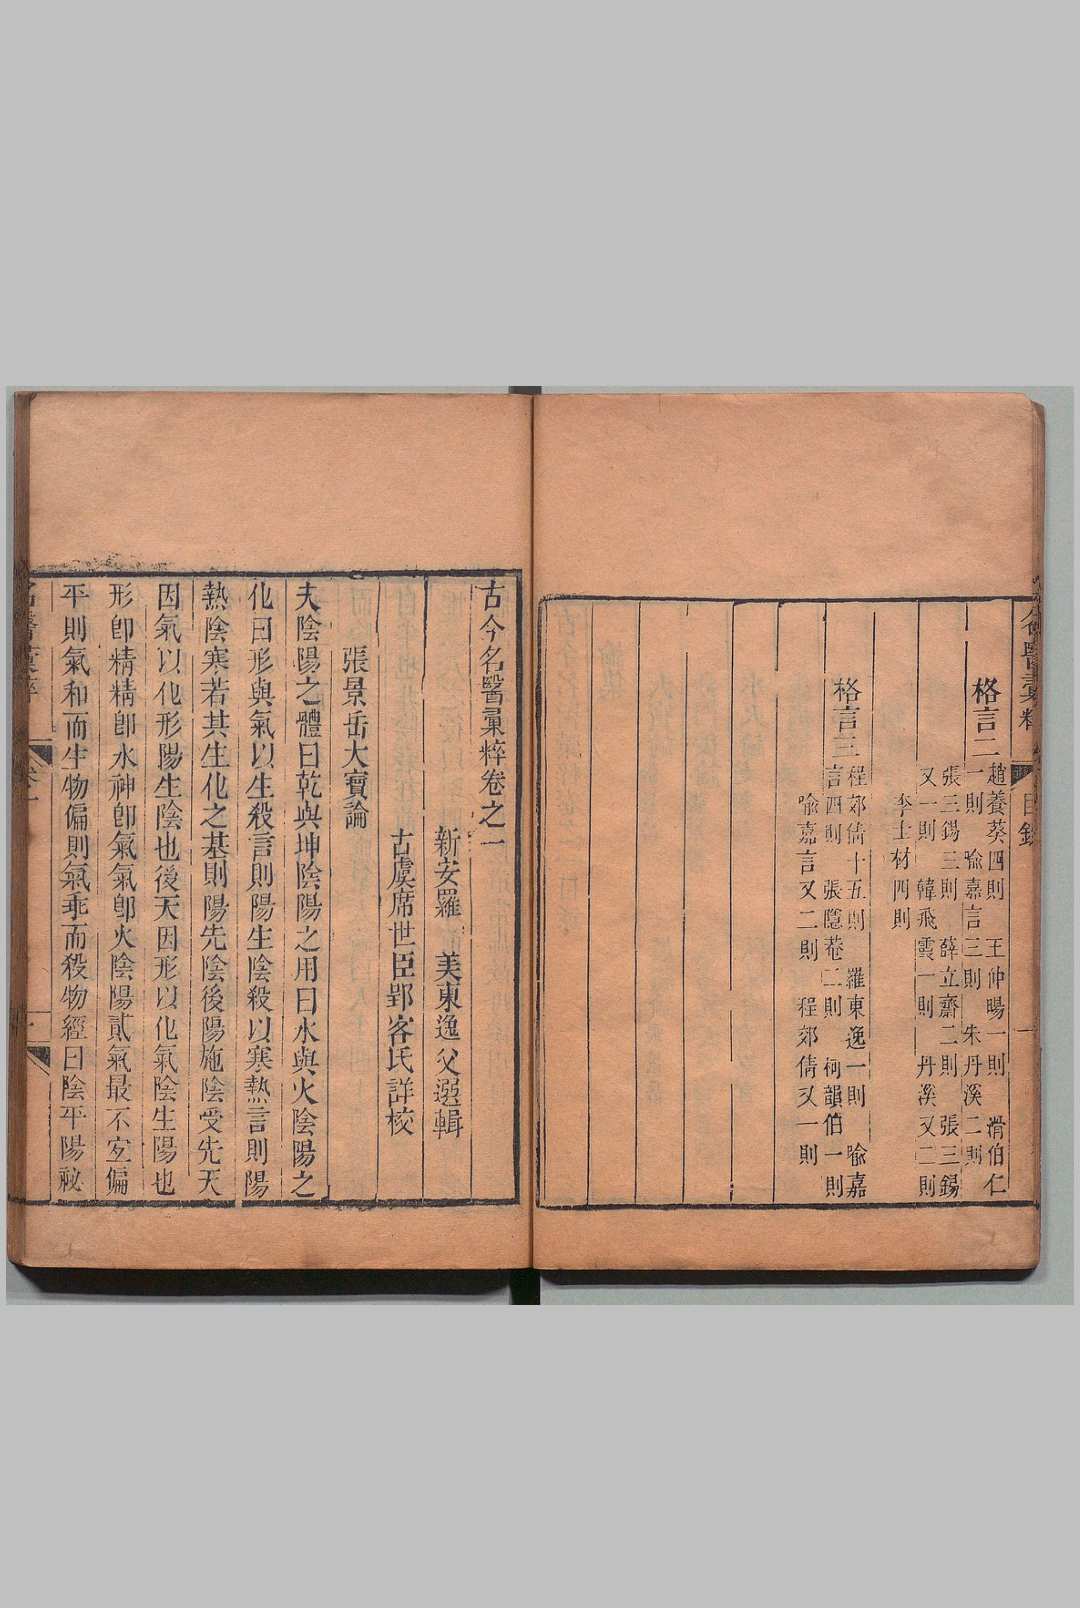 格言二
趙養葵四則　王仲暘一則　滑伯仁
一則　喻嘉言三則　朱丹溪二則
張三錫三則　薛立齋二則　張三錫
又一則　韓飛霞一則　丹溪又二則
李士材四則
格言三
程郊倩十五則　羅東逸一則　喻嘉
言四則　張隱菴二則　柯韻伯一則
喻嘉言又二則　程郊倩又一則
古今名醫彙粹卷之一
新安羅　美東逸父選輯
古虞席世臣郢客氏詳校
張景岳大寶論
夫陰陽之體曰乾與坤陰陽之用曰水與火陰陽之
化曰形與氣以生殺言則陽生陰殺以寒熱言則陽
熱陰寒若其生化之基則陽先陰後陽施陰受先天
因氣以化形陽生陰也後天因形以化氣陰生陽也
形卽精精卽水神卽氣氣卽火陰陽貳氣最不宜偏
平則氣和而生物偏則氣乖而殺物經曰陰平陽祕
名醫彙粹
卷一